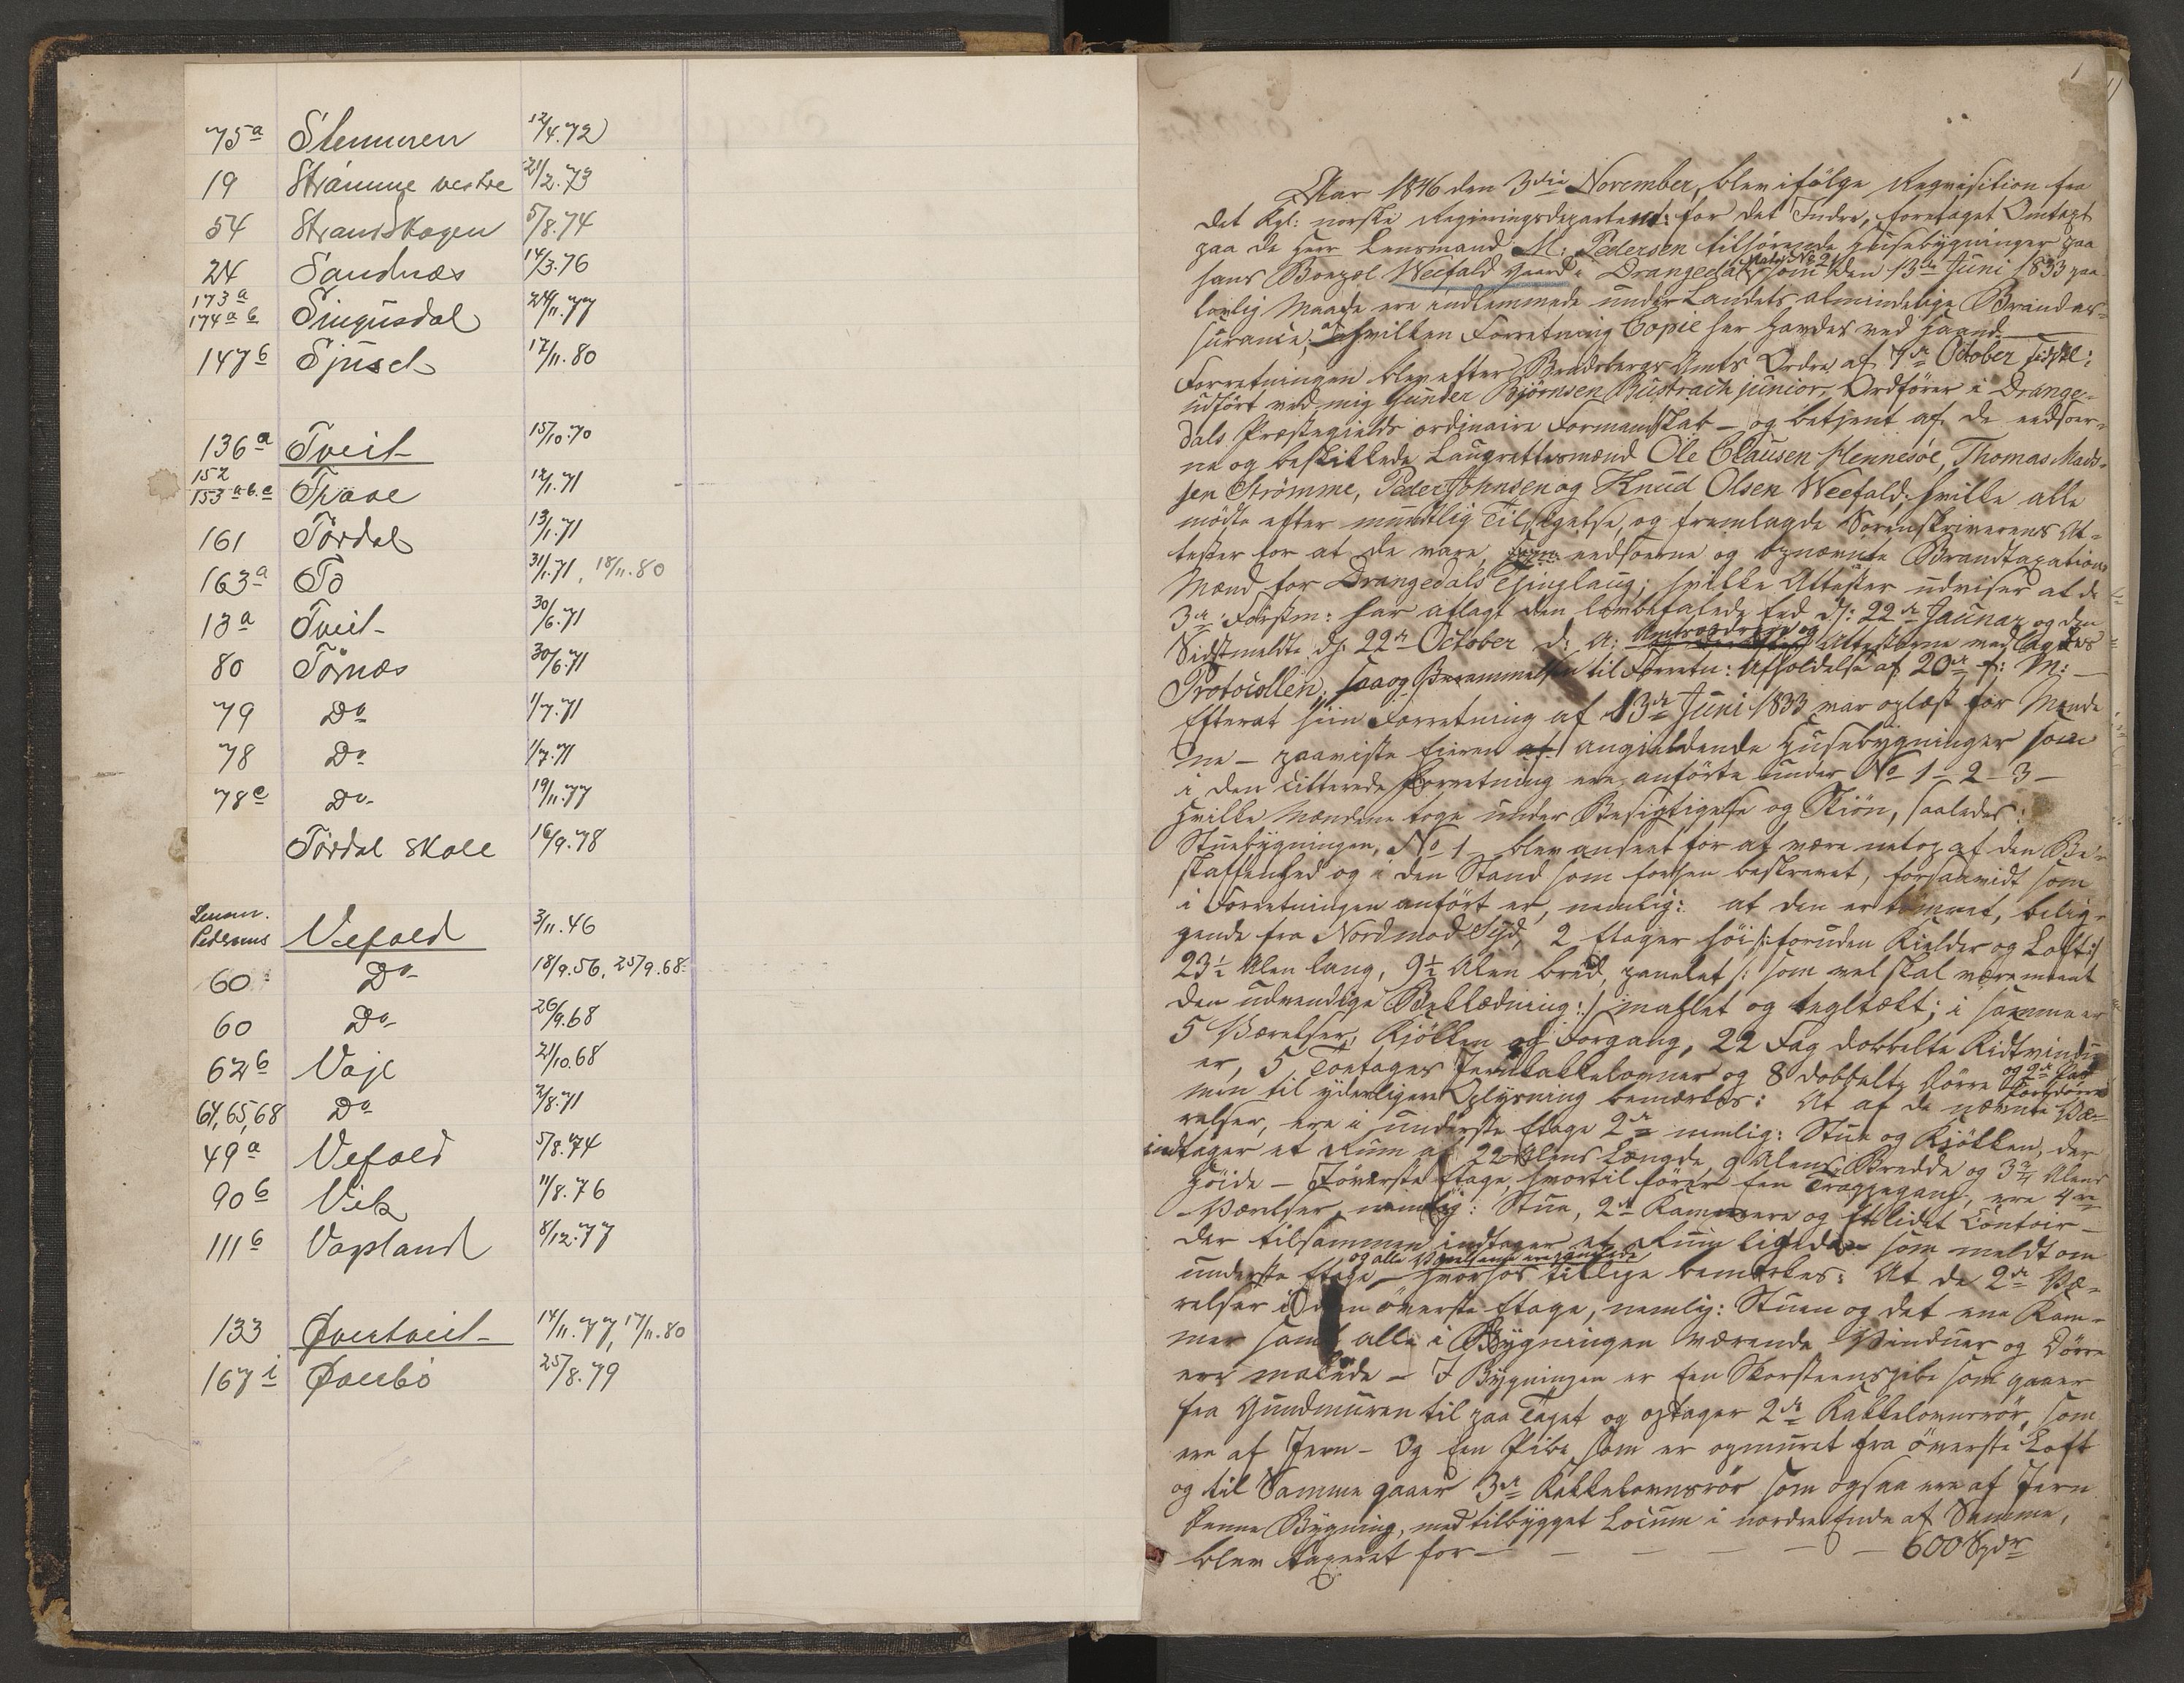 75a Stemmen 12/4.72
19 Strømme vestre 21/2.73
54 Strandskogen 5/8.74
24 Sandnæs 14/3.76
173a
174a b Singusdal 24/11.77
147b Sjusel 17/11.80
136a Tveit 15/10.70
152
153 a.b.c 12/1.71
161 Tørdal 13/1.71
163a To 31/1.71, 18/11.80
13a Tveit 30/6.71
80 Tørnæs 30/6.71
79 Do 1/7.71
78 Do 1/7.71
78c Do 19/11.77
Tørdal skole 16/9.78
Lensm.
Pedersens Vefald 3/11.46
60 Do 18/9.56, 25/9.68
60 Do 26/9.68
62b Voje 21/10.68
64, 65, 68 Do 2/8.71
49a Vefald 5/8.74
90b Vik 11/8.76
111b Vopland 8/12.77
133 Øvertveit 14/11.77, 17/11.80
167i Øverbø 25/8.79
1
Aar 1846 den 3die November, blev ifølge Reqvisition fra
det Kgl: norske Regjeringsdepartemt: for det Indre, foretaget Omtaxt
paa de Herr Lensmand M: Pedersen tilhørende Huusebygninger paa
hans Bopæl Weefald gaard i Drangedal Matr. No 2 som den 13de Juni 1833 paa
lovlig Maade ere indlemmede under Landets almindelige Brandas-
surance, af hvilken Forretning Copie her havdes ved Haand.
Forretningen blev efter Bradsbergs Amts Ordre af 7de October sidstl:
udført ved mig Gunder Bjørnsen Bustrach junior, Ordfører i Drange-
dals Præstegields ordinaire Formandskab - og betjent af de eedsvor-
ne og beskikkede Laugrettesmænd Ole Clausen Hennesøe, Thomas Mads-
sen Strømme, Peder Johnsen og Knud Olsen Weefald, hvilke alle
mødte efter mundtlig Tilsigelse, og fremlagde Sorenskriverens At-
tester for at de vare eedsvorne og opnævnte Brandtaxations
Mænd for Drangedals Thinglaug; hvilke Attester udviser at de
3de Førstn: har aflagt den lovbefalede Eed d: 22de Januar og den
Sidstmeldte d: 22de October d: A: Amtsordren og Attesterne vedlagdes
Protocollen, saa og Berammelsen til Forretn: Afholdelse af 20de f: M:
Efterat hiin Forretning af 13de Juni 1833 var oplæst for Mænde
ne - paaviste Eieren angieldende Huusebygninger som
i den citerede Forretning ere anførte under No 1 - 2 - 3 -
Hvilke Mændene toge under Besigtigelse og Skiøn, saaledes:
Stuebygningen, No 1 - blev anseet for at være netop af den Be-
skaffenhed og i den Stand som forhen beskrevet, forsaavidt som
i Forretningen anført er, nemlig: at den er tømret, belig-
gende fra Nord mod Syd, 2 Etager høi /: foruden Kielder og Loft :/
23½ Alen lang, 9½ Alen bred, panelet /: som vel skal være meent
den udvendige Beklædning :/ mahlet og tegltækt; i samme er
5 Værelser, Kjøkken og Forgang, 22 Fag dobbelte Kidtvindu-
er, 5 Toetages Jernkakkelovner og 8 dobbelte Dørre og 2de
men til yderligere Oplysning bemærkes: At af de nævnte Væ-
relser, ere i underste Etage 2de nemlig: Stue og Kjøkken, der
indtager et Rum af 22 Alens Længde 9 Alens Bredde og 3¾ Alens
Høide - I øverste Etage, hvortil fører een Trappegang, ere 4re
Værelser, nemlig: Stue, 2de Kammere og et lidet Contoir -
der tilsammen indtager et Rum ligedan som meldt om
underste Etage - og alle Værelserne ere hvorhos tillige bemærkes: At de 2de Væ-
relser i den øverste Etage, nemlig: Stuen og det ene Kam-
mer samt alle i Bygningen værende Vinduer og Dørre
ere malede - I Bygningen er een Skorsteenspibe som gaaer
fra Gundmuren til paa Taget og optager 2de Kakkelovnsrør, som
ere af Jern - Og een Pibe som er opmuret fra øverste Loft
og til Samme gaaer 3de Kakkelovnsrør som ogsaa ere af Jern
Denne Bygning, med tilbygget Locum i nordre Ende af Samme,
blev taxeret for - - - - - 600 Spdr